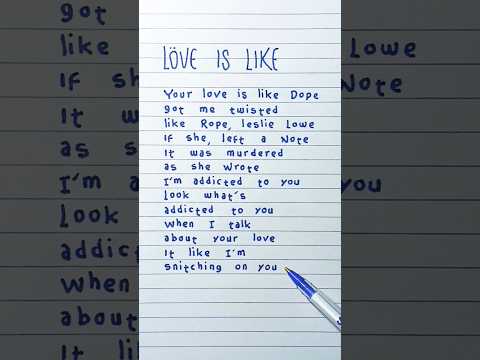 LÖVE IS LIKE
Your love is like Dope
got me twisted
like Rope, leslie Lowe
If she, left a Note
It was murdered
as she wrote
I'm addicted to you
Look what's
addicted to you
when I talk
about your love
It like I'm
snitching on you